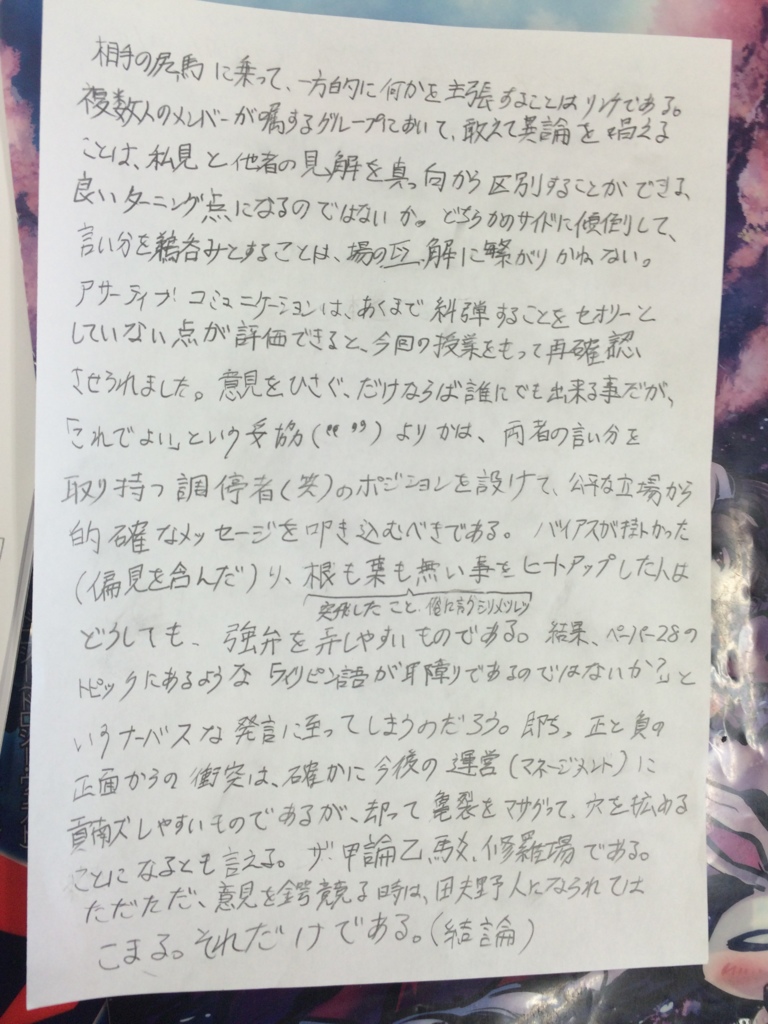 相手の尻馬に乗って、一方的に何かを主張することはリンチである。
複数人のメンバーが嘱するグループにおいて、敢えて異論を唱える
ことは、私見と他者の見解を真っ向から区別することができる、
良いターニング点になるのではないか。どちらかのサイドに傾倒して、
言い分を鵜呑みとすることは、場の瓦解に繋がりかねない。
アサーティブ・コミュニケーションは、あくまで糾弾することをセオリーと
していない点が評価できると、今回の授業をもって再確認
させられました。意見をひさぐ、だけならば誰にでも出来る事だが、
「これでよい」という妥協(“ ”)よりかは、両者の言い分を
取り持つ調停者(笑)のポジションを設けて、公平な立場から
的確なメッセージを叩き込むべきである。バイアスが掛かった
(偏見を含んだ)り、根も葉も無い事をヒートアップした人は
こと、俗に言う
どうしても、強弁を弄しやすいものである。結果、ペーパー28の
トピックにあるような「フィリピン語が耳障りであるのではないか?」と
いうナーバスな発言に至ってしまうのだろう。即ち、正と負の
正面からの衝突は、確かに今後の運営(マネージメント)に
貢献しやすいものであるが、却って亀裂をマサグって、穴を拡める
ことになるとも言える。ザ・甲論乙駁、修羅場である。
ただただ、意見を鍔競る時は、田夫野人になられては
こまる。それだけである。(結論)